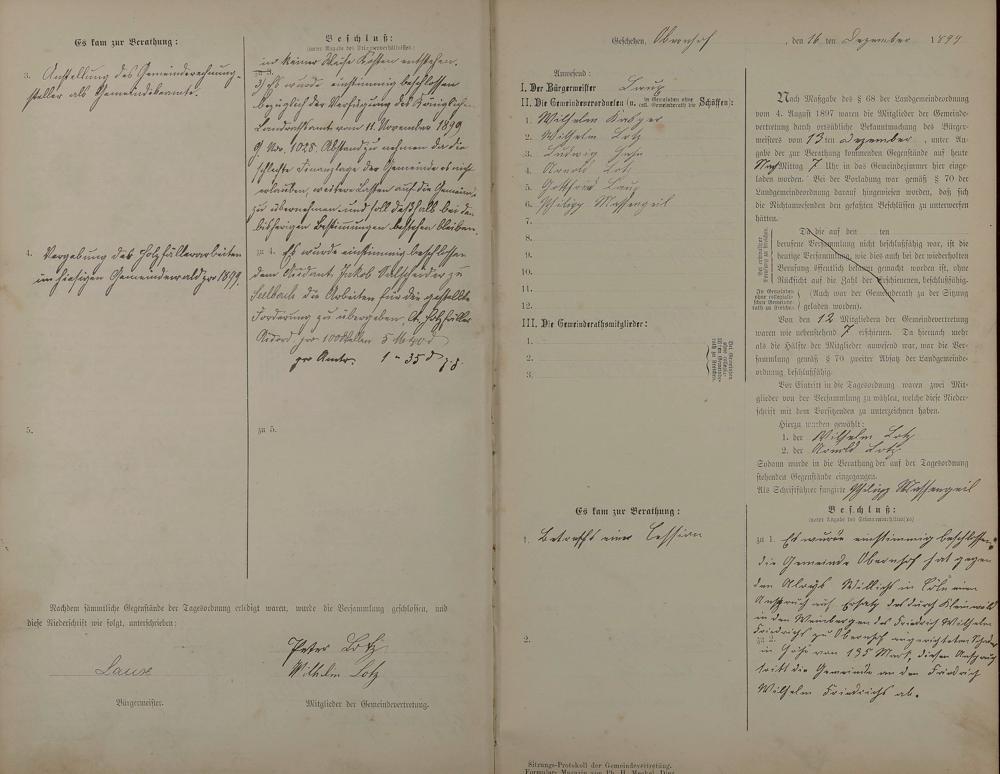 Es kam zur Berathung:
3. Anstellung des Gemeinderechnung-
steller als Gemeindebeamte.
4. Vergebung des Holzfällerarbeiten
im hiesigen Gemeindewald pro 1899.
5.
Beschluß:
(unter Angabe des Stimmenverhältnisses:)
in keiner Weise Kosten entstehen.
zu 3.
3) Es wurde einstimmig beschlossen
bezüglich der Verfügung des Königlichen
Landrathsamt vom 11. November 1899
J. Nro. 1028. Abstand zu nehmen da die
schlechte Finanzlage der Gemeinde es nicht
erlauben, weitere Lasten auf die Gemeinde
zu übernehmen und soll deßhalb bei den
bisherigen Bestimmungen bestehen bleiben.
zu 4. Es wurde einstimmig beschlossen
dem Jakob zu
Seelbach die Arbeiten für die gestellte
Forderung zu übergeben, Holzfäller
Accord pro 100 Wellen 5 M
pro Rmtr. 1 - 35 d
zu 5.
Nachdem sämmtliche Gegenstände der Tagesordnung erledigt waren, wurde die Versammlung geschlossen, und
diese Niederschrift wie folgt, unterschrieben:
Peter Lotz
Laux
Wilhelm Lotz
Bürgermeister.
Mitglieder der Gemeindevertretung.
Geschehen, Obernhof, den 16 ten Dezember 1899
Anwesend:
I. Der Bürgermeister Laux
II. Die Gemeindeverordneten (u. in Gemeinden ohne coll. Gemeinderath die Schöffen):
1. Wilhelm Kasper
2. Wilhelm Lotz
3. Ludwig
4. Arnold Lotz
5. Gottfried Laux
6. Philipp Massengeil
7.
8.
9.
10.
11.
12.
III. Die Gemeinderathsmitglieder:
1.
2.
3.
Es kam zur Berathung:
1. Betreffs einer Cession
2.
Sitzungs-Protokoll der Gemeindevertretung.
Nach Maßgabe des § 68 der Landgemeindeordnung
vom 4. August 1897 waren die Mitglieder der Gemeinde-
vertretung durch ortsübliche Bekanntmachung des Bürger-
meisters vom 13 ten Dezember, unter An-
gabe der zur Berathung kommenden Gegenstände auf heute
Nach Mittag 7 Uhr in das Gemeindezimmer hier einge-
laden worden. Bei der Vorladung war gemäß § 70 der
Landgemeindeordnung darauf hingewiesen worden, daß sich
die Nichtanwesenden den gefaßten Beschlüssen zu unterwerfen
hätten.
Da die auf den ten
berufene Versammlung nicht beschlußfähig war, ist die
heutige Versammlung, wie dies auch bei der wiederholten
Berufung öffentlich bekannt gemacht worden ist, ohne
Rücksicht auf die Zahl der Erschienenen, beschlußfähig.
(Auch war der Gemeinderath zu der Sitzung
geladen worden).
Von den 12 Mitgliedern der Gemeindevertretung
waren wie nebenstehend 7 erschienen. Da hiernach mehr
als die Hälfte der Mitglieder anwesend war, war die Ver-
sammlung gemäß § 70 zweiter Absatz der Landgemeinde-
ordnung beschlußfähig.
Vor Eintritt in die Tagesordnung waren zwei Mit-
glieder von der Versammlung zu wählen, welche diese Nieder-
schrift mit dem Vorsitzenden zu unterzeichnen haben.
Hierzu wurden gewählt:
1. der Wilhelm Lotz
2. der Arnold Lotz
Sodann wurde in die Berathung der auf der Tagesordnung
stehenden Gegenstände eingegangen.
Als Schriftführer fungirte Philipp Massengeil
Beschluß:
(unter Angabe des Stimmenverhältnisses)
zu 1. Es wurde einstimmig beschlossen:
die Gemeinde Obernhof hat gegen
den Aloys Willich in Cöln einen
Anspruch auf Ersatz des durch Kleinwild
in den Weinbergen des Friedrich Wilhelm
Friedrichs zu Obernhof angerichteten Schaden
zu 2.
in Höhe von 135 Mark, diesen Anspruch
tritt die Gemeinde an den Friedrich
Wilhelm Friedrichs ab.